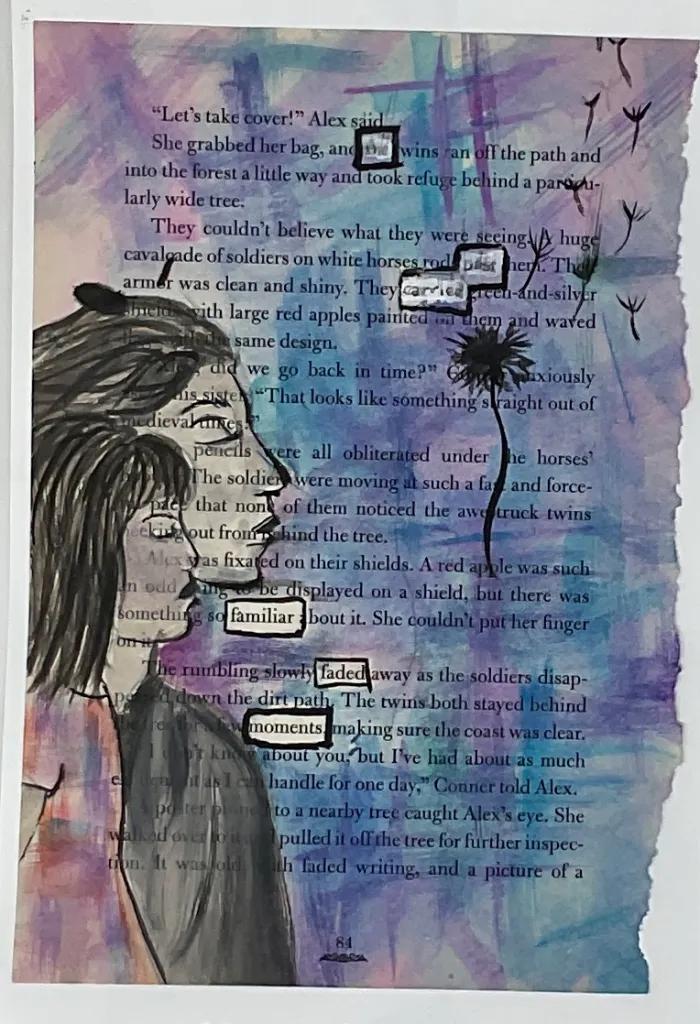 “Let’s take cover!” Alex said.
She grabbed her bag, and the twins ran off the path and
into the forest a little way and took refuge behind a particu-
larly wide tree.
They couldn’t believe what they were seeing. A huge
cavalcade of soldiers on white horses rode past them. Their
armor was clean and shiny. They carried green-and-silver
shields with large red apples painted on them and waved
flags with the same design.
did we go back in time?” anxiously
his sister. “That looks like something straight out of
medieval times.”
pencils were all obliterated under the horses’
The soldiers were moving at such a fast and force-
pace that none of them noticed the awestruck twins
peeking out from behind the tree.
Alex was fixated on their shields. A red apple was such
an odd thing to be displayed on a shield, but there was
something so familiar about it. She couldn’t put her finger
on it.
The rumbling slowly faded away as the soldiers disap-
peared down the dirt path. The twins both stayed behind
the tree for a few moments, making sure the coast was clear.
I don’t know about you, but I’ve had about as much
as I can handle for one day,” Conner told Alex.
A poster pinned to a nearby tree caught Alex’s eye. She
walked over to it and pulled it off the tree for further inspec-
tion. It was old, with faded writing, and a picture of a
84